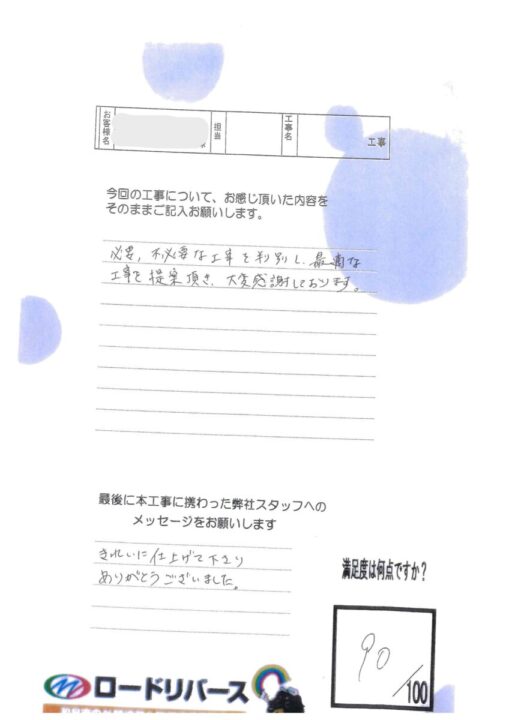 お客様名
担当
工事名
工事
今回の工事について、お感じ頂いた内容を
そのままご記入お願いします。
必要,不必要な工事を判別し、最適な
工事を提案頂き、大変感謝しております。
最後に本工事に携わった弊社スタッフへの
メッセージをお願いします
きれいに仕上げて下さり
ありがとうございました。
満足度は何点ですか?
90
/100
ロードリバース